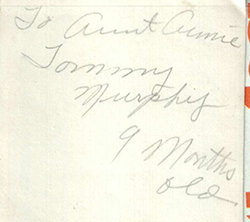 To Aunt Annie
Tommy
Murphy
9 Months
old.